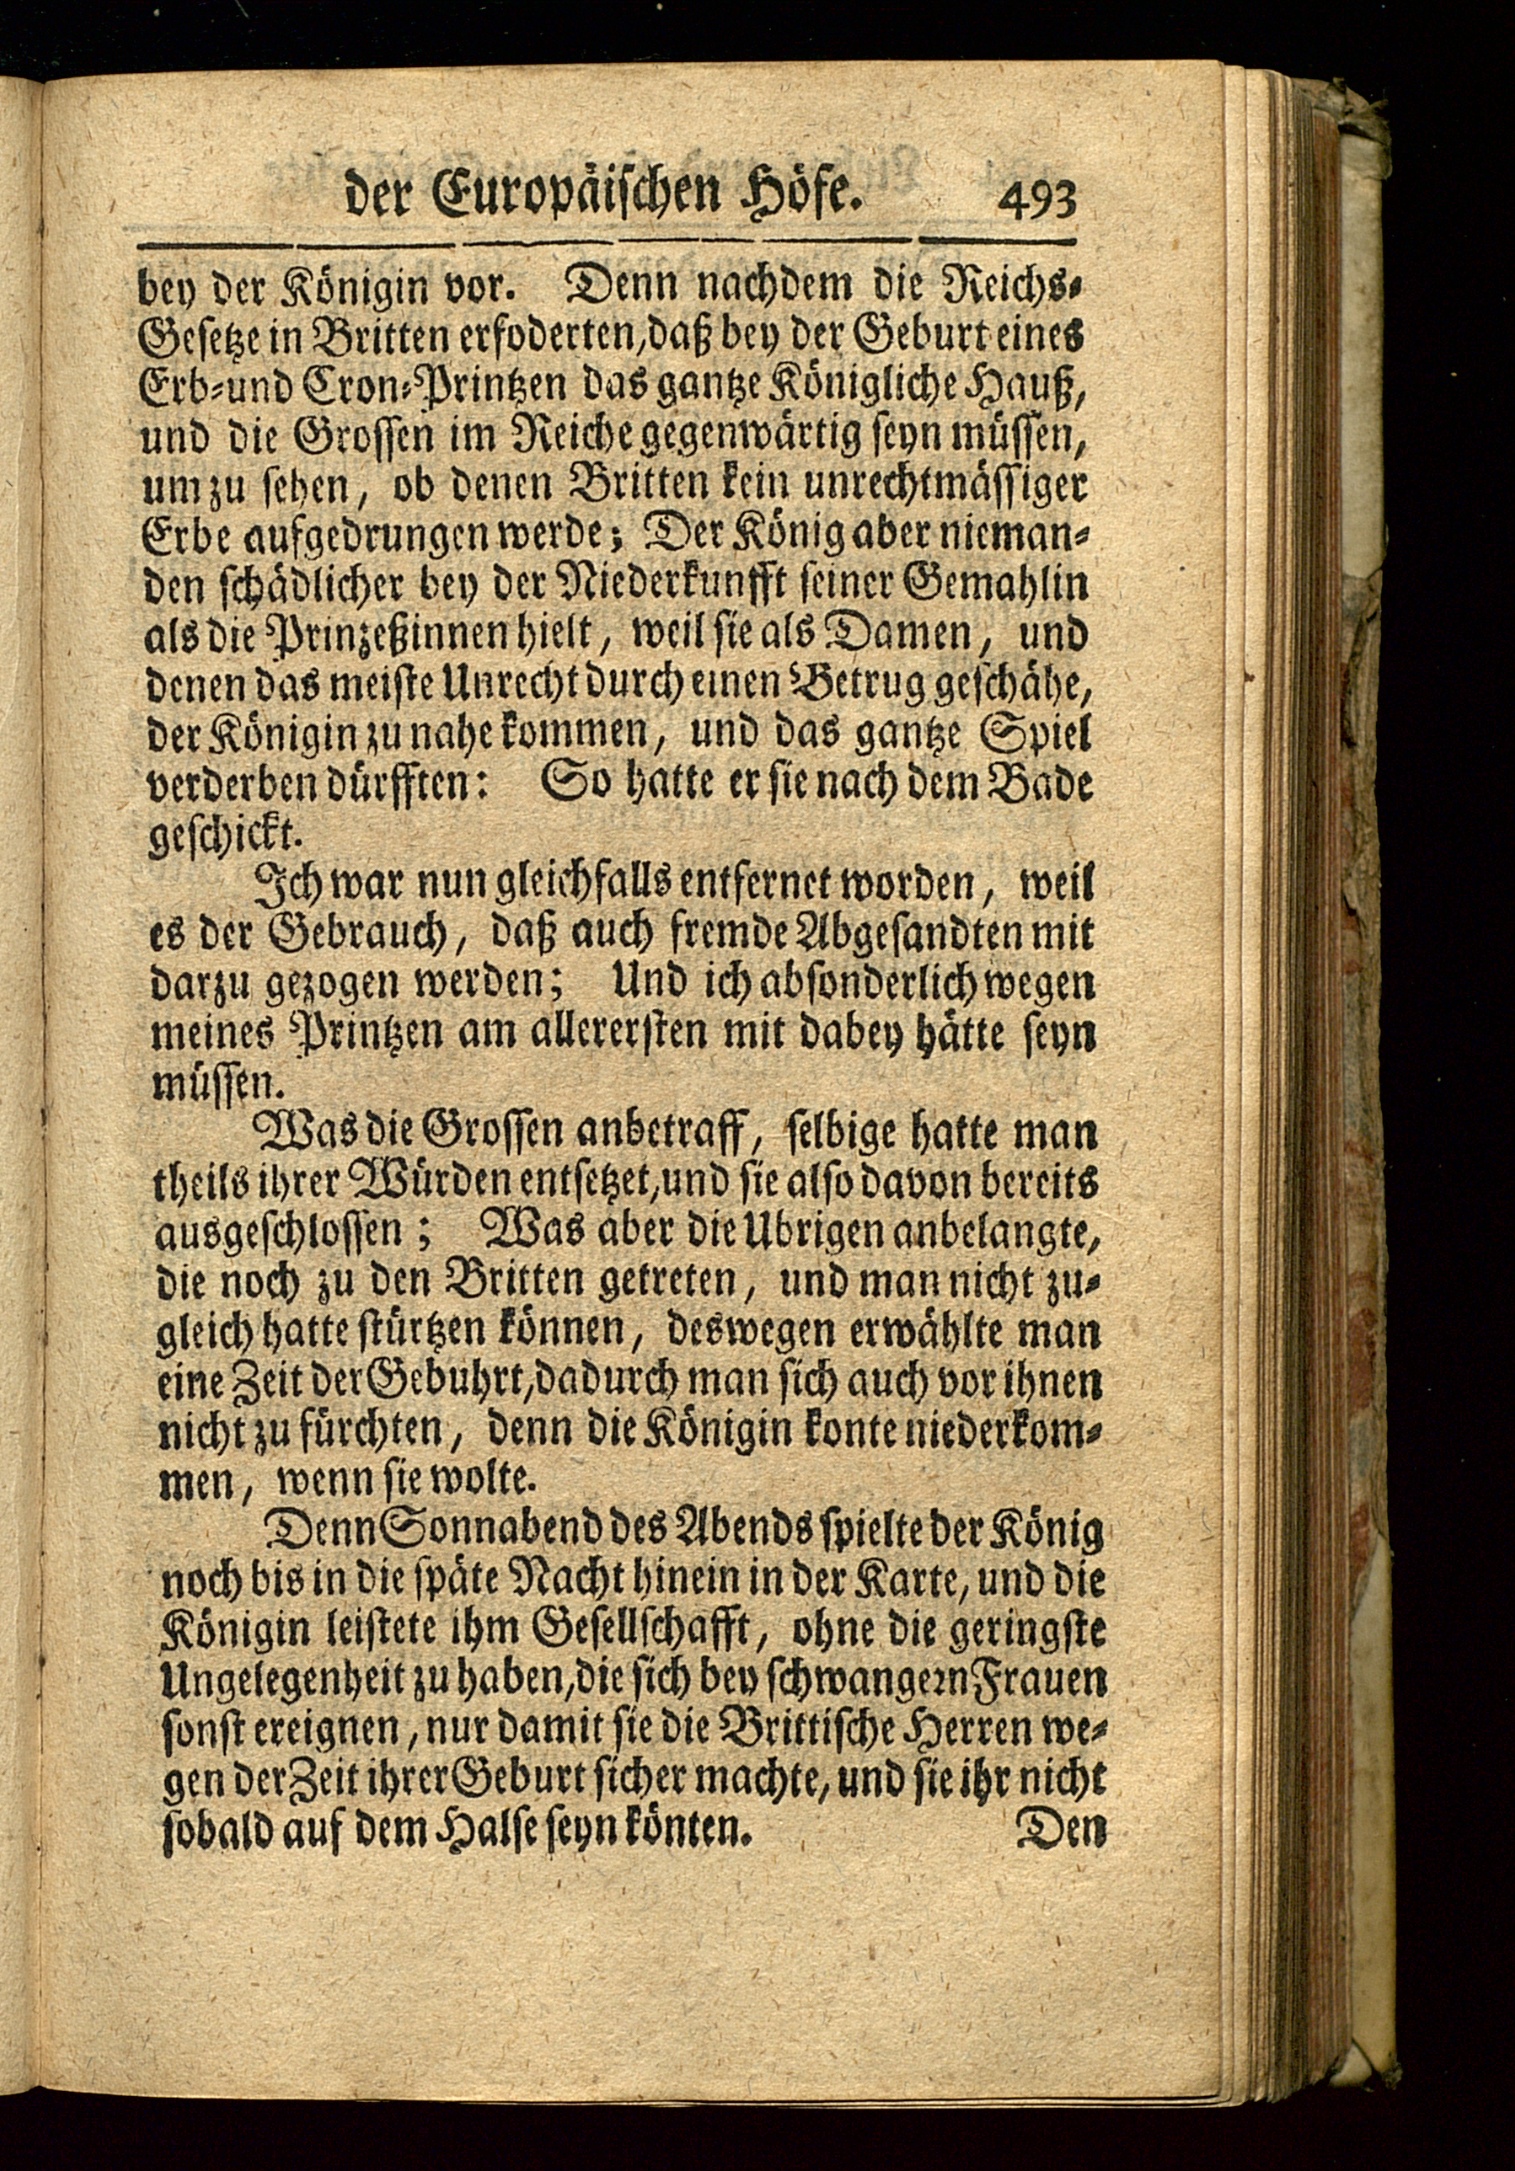 der Europäischen Höfe. 493
bey der Königin vor. Denn nachdem die Reichs-
Gesetze in Britten erfoderten, daß bey der Geburt eines
Erb- und Cron-Printzen das gantze Königliche Hauß,
und die Grossen im Reiche gegenwärtig seyn müssen,
um zu sehen, ob denen Britten kein unrechtmässiger
Erbe aufgedrungen werde; Der König aber nieman-
den schädlicher bey der Niederkunfft seiner Gemahlin
als die Prinzeßinnen hielt, weil sie als Damen, und
denen das meiste Unrecht durch einen Betrug geschähe,
der Königin zu nahe kommen, und das gantze Spiel
verderben dürfften: So hatte er sie nach dem Bade
geschickt.
Ich war nun gleichfalls entfernet worden, weil
es der Gebrauch, daß auch fremde Abgesandten mit
darzu gezogen werden; Und ich absonderlich wegen
meines Printzen am allerersten mit dabey hätte seyn
müssen.
Was die Grossen anbetraff, selbige hatte man
theils ihrer Würden entsetzet, und sie also davon bereits
ausgeschlossen; Was aber die Ubrigen anbelangte,
die noch zu den Britten getreten, und man nicht zu-
gleich hatte stürtzen können, deswegen erwählte man
eine Zeit der Gebuhrt, dadurch man sich auch vor ihnen
nicht zu fürchten, denn die Königin konte niederkom-
men, wenn sie wolte.
Denn Sonnabend des Abends spielte der König
noch bis in die späte Nacht hinein in der Karte, und die
Königin leistete ihm Gesellschafft, ohne die geringste
Ungelegenheit zu haben, die sich bey schwangern Frauen
sonst ereignen, nur damit sie die Brittische Herren we-
gen der Zeit ihrer Geburt sicher machte, und sie ihr nicht
sobald auf dem Halse seyn könten. Den